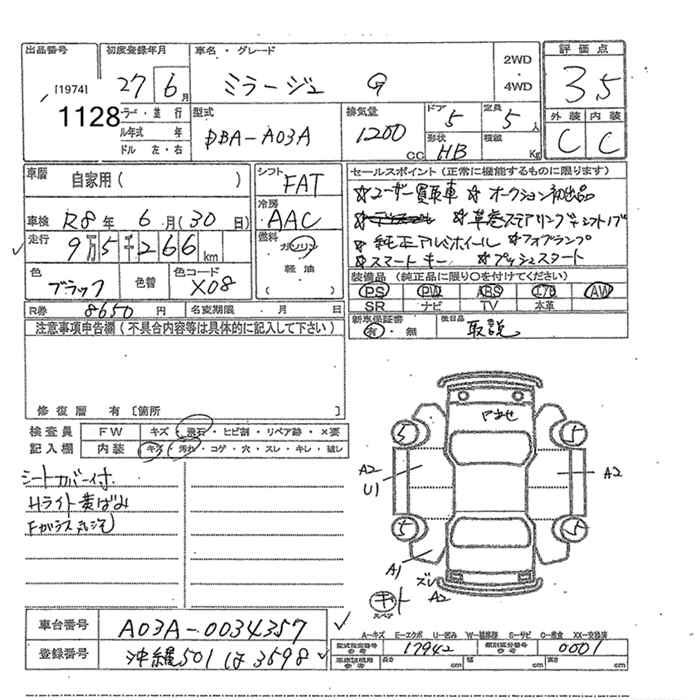 出品番号 初度登録年月 車名・グレード 評価点
[1974] 1128
27 6月
ミラージュ G
2WD
・
4WD
3.5
外装 内装
C C
ラー・並行
ル年式 年
ドル 左・右
型式
DBA-A03A
排気量
1200 CC
ドア 5
定員 5人
形状 HB
積載 Kg
車暦
自家用( )
シフト
FAT
車検 R8年 6月(30日)
冷房
AAC
走行 9万5千266km
燃料
ガソリン
軽油
( )
色
ブラック
色替
色コード
X08
R券 8650円 名変期限 月 日
セールスポイント(正常に機能するものに限ります)
☆ユーザー買取車 ☆オークション初出品
☆革巻ステアリング&シフトノブ
☆純正アルミホイール ☆フォグランプ
☆スマートキー ☆プッシュスタート
装備品(純正品に限り○を付けてください)
PS PW ABS エアB AW
SR ナビ TV 本革
新車保証書
有・無
後日品
取説
注意事項申告欄(不具合内容等は具体的に記入して下さい)
修復歴 有[箇所 ]
検査員 FW キズ・飛石・ヒビ割・リペア跡・×要
記入欄 内装 キズ・汚れ・コゲ・穴・スレ・キレ・破レ
シートカバー付
Hライト黄ばみ
5 5
A2
U1
A2
5 5
A1
ズレ
A2
スペア
車台番号 A03A-0034357
登録番号 沖縄501 は 3598
A-キズ E-エクボ U-凹み W-補修跡 S-サビ C-腐食 XX-交換済
型式指定番号 参考 17942 類別区分番号 参考 0001
長さ cm 幅 cm 高さ cm